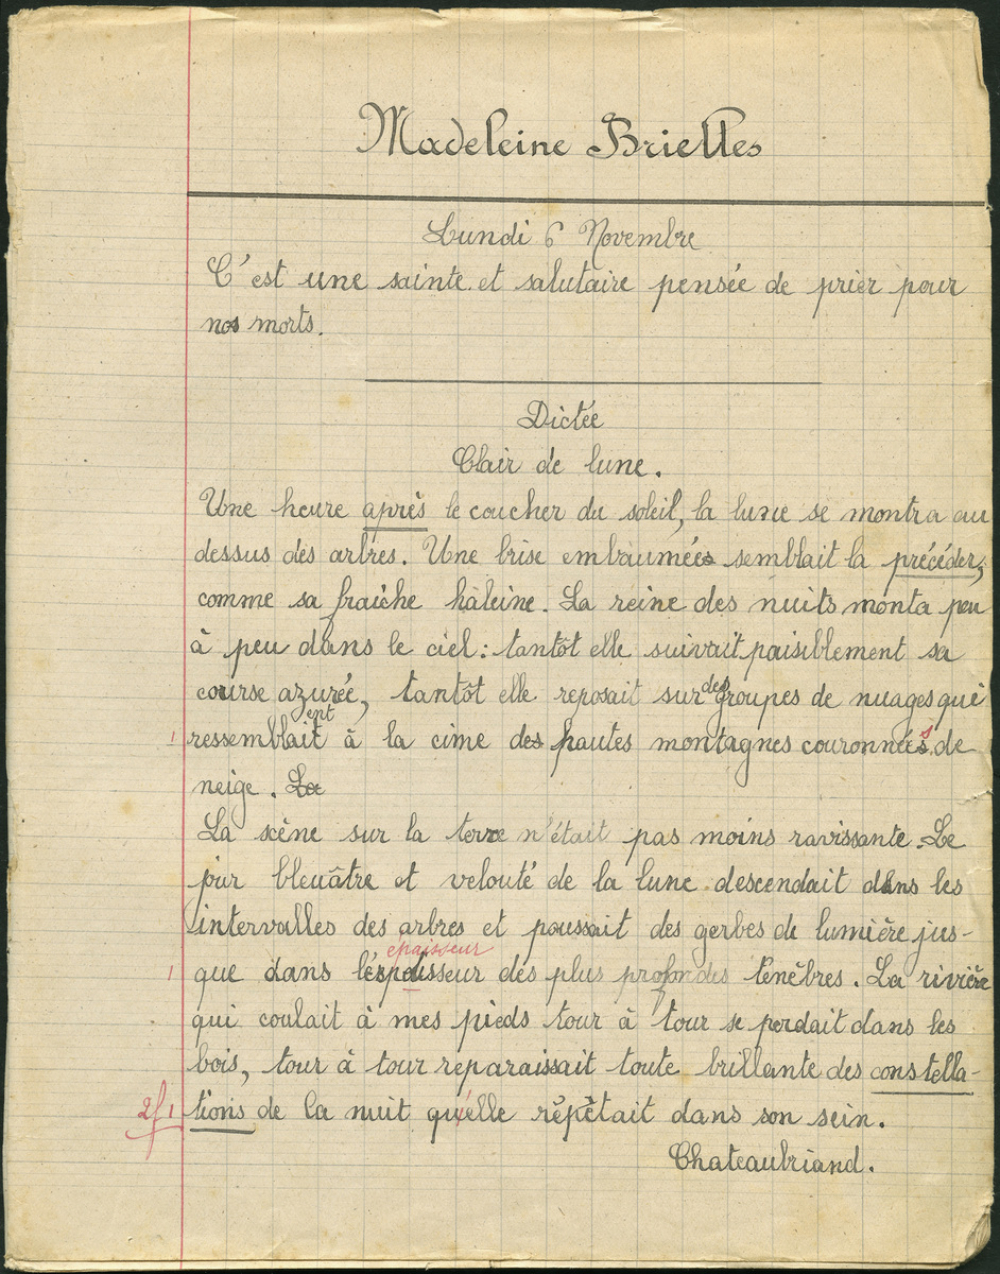 Madeleine Brielles
Lundi 6 Novembre
C'est une sainte et salutaire pensée de prier pour
nos morts.
Dictée
Clair de lune.
Une heure après le coucher du soleil, la lune se montra au
dessus des arbres. Une brise embaumée semblait la précéder,
comme sa fraîche haleine. La reine des nuits monta peu
à peu dans le ciel : tantôt elle suivait paisiblement sa
course azurée, tantôt elle reposait sur des groupes de nuages qui
1 ressemblaient à la cime des hautes montagnes couronnées de
neige. La
La scène sur la terre n'était pas moins ravissante. Le
jour bleuâtre et velouté de la lune descendait dans les
intervalles des arbres et poussait des gerbes de lumière jus-
épaisseur
1 que dans l'épaisseur des plus profondes ténèbres. La rivière
qui coulait à mes pieds tour à tour se perdait dans les
bois, tour à tour reparaissait toute brillante des constella-
2f 1 tions de la nuit qu'elle répètait dans son sein.
Chateaubriand.